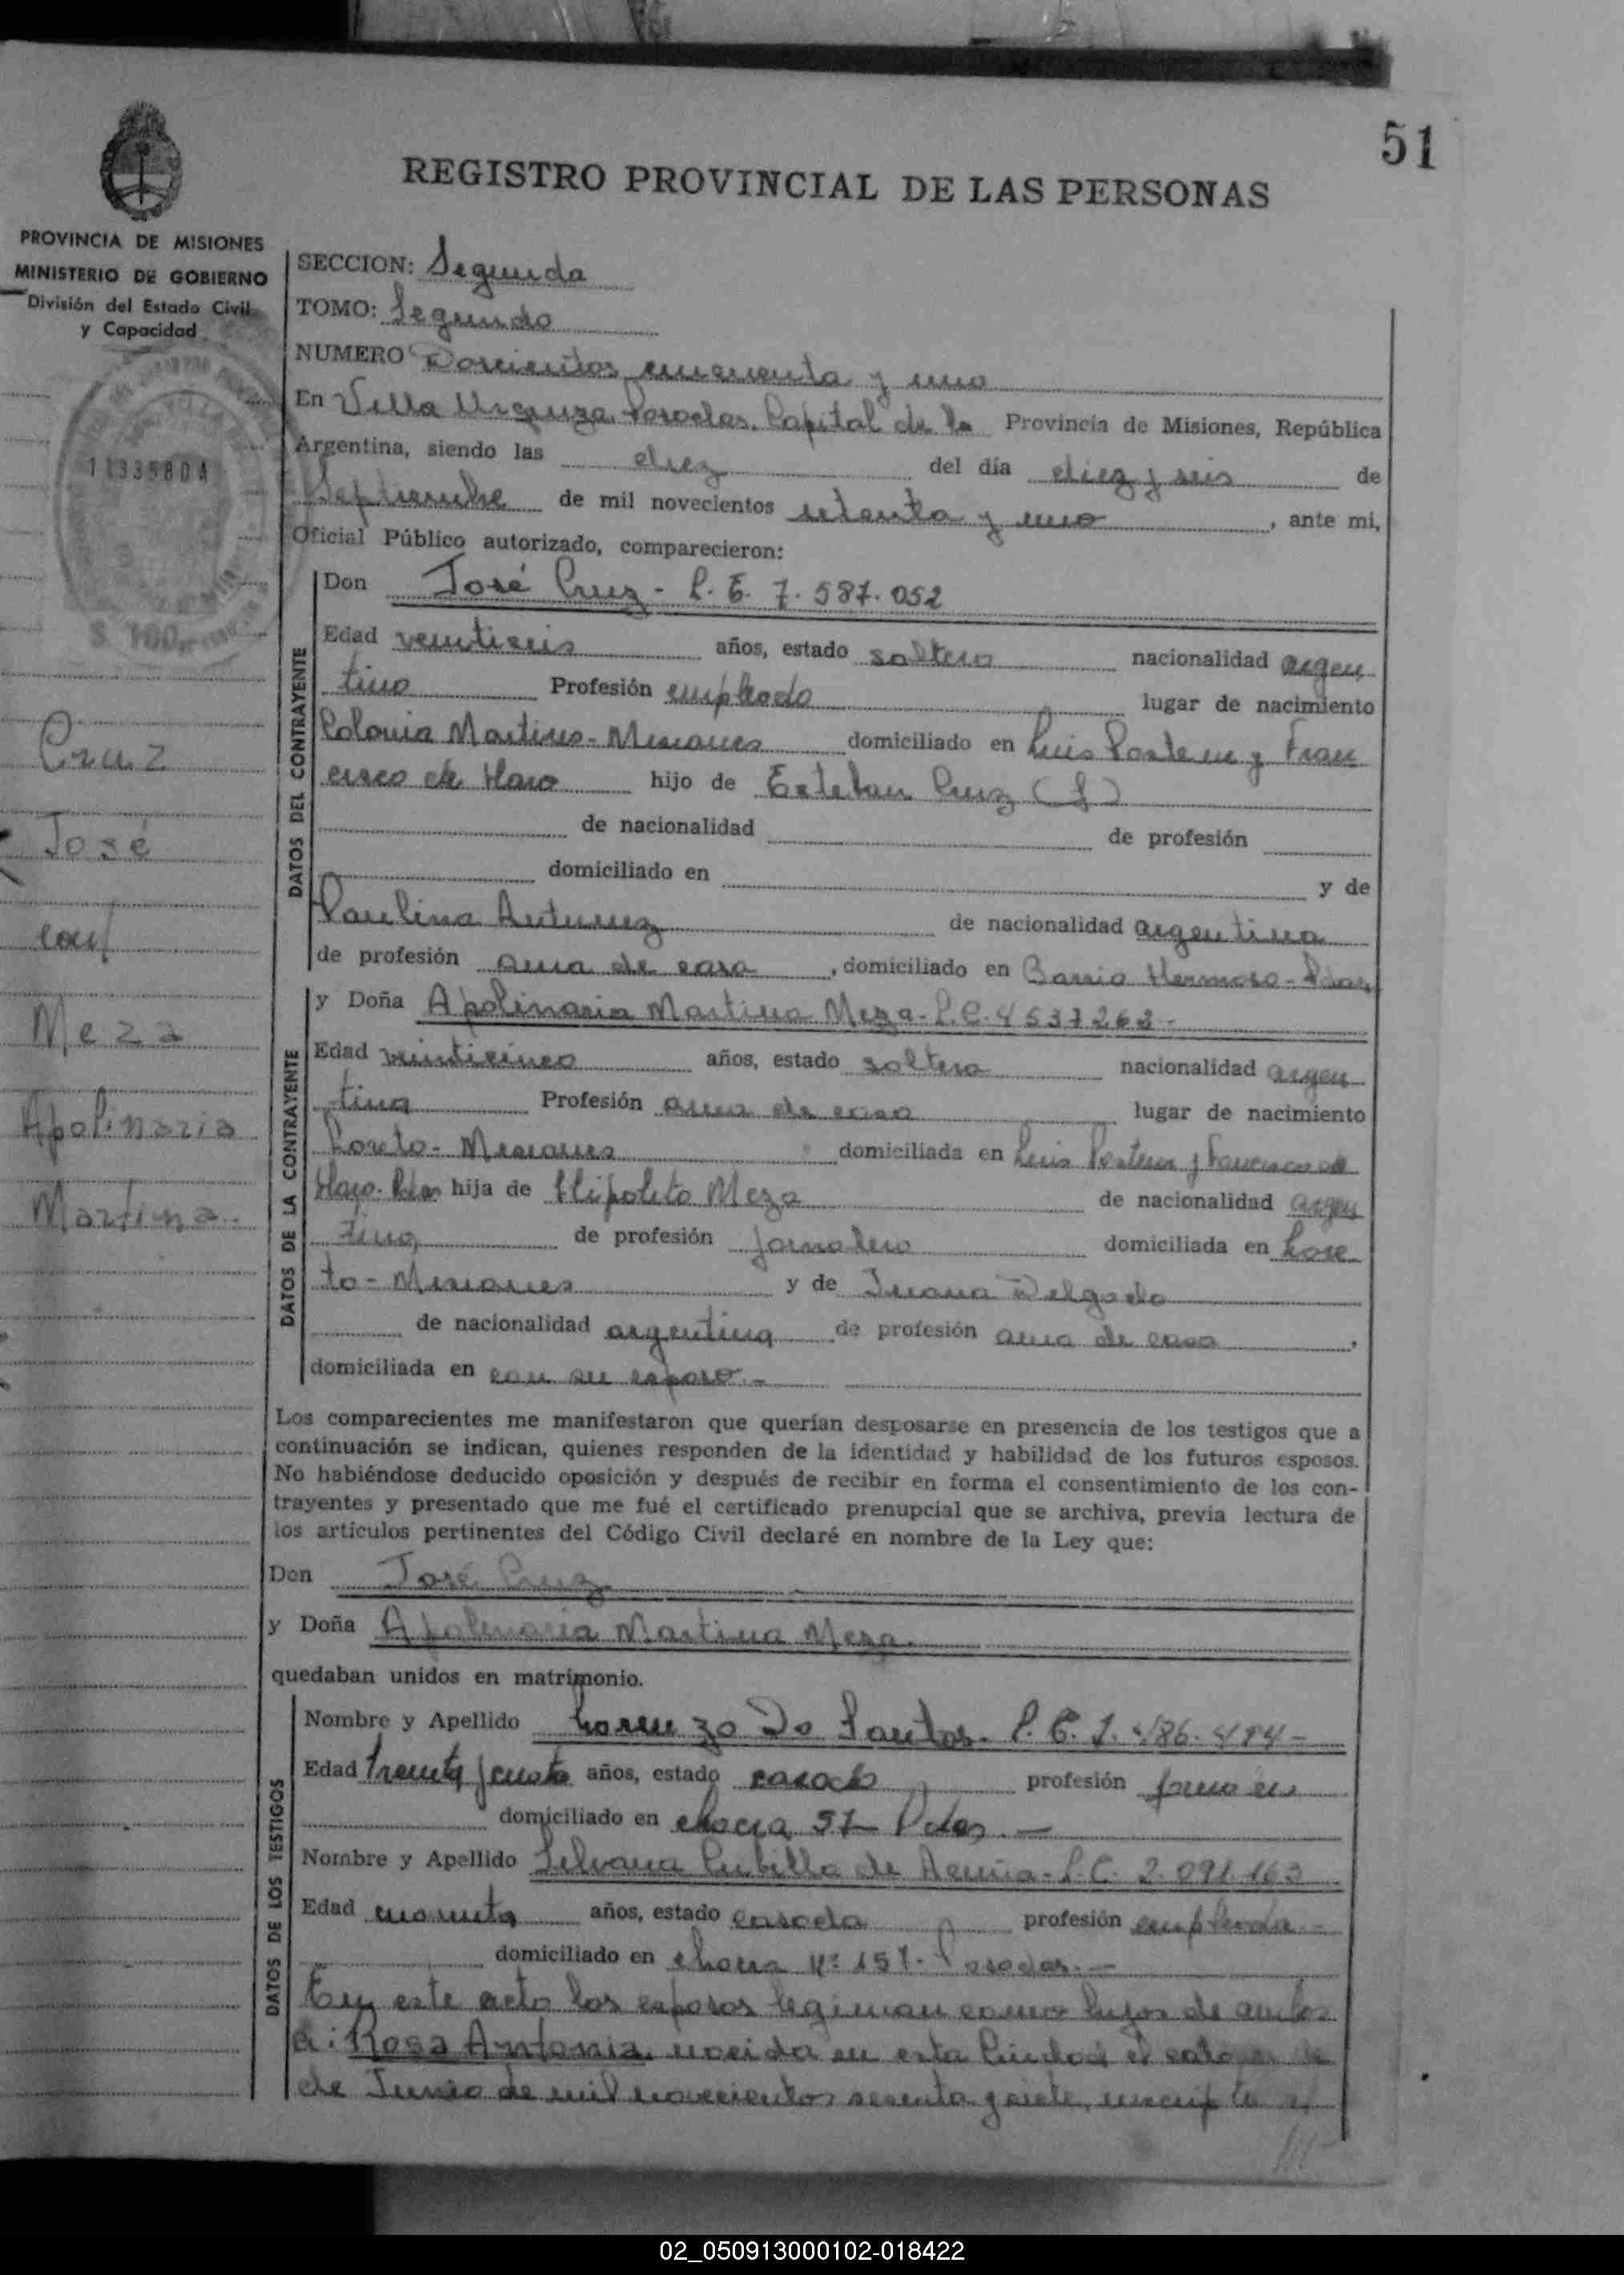 51
REGISTRO PROVINCIAL DE LAS PERSONAS
PROVINCIA DE MISIONES
MINISTERIO DE GOBIERNO
División del Estado Civil
y Capacidad
11335804
$ 100
Cruz
José
con
Meza
Apolinaria
Martina.
SECCION: Segunda
TOMO: Segundo
NUMERO Doscientos cincuenta y uno
En Villa Urquiza, Posadas, Capital de la Provincia de Misiones, República
Argentina, siendo las diez del día diez y seis de
Septiembre de mil novecientos setenta y uno, ante mi,
Oficial Público autorizado, comparecieron:
DATOS DEL CONTRAYENTE
Don José Cruz - L. E. 7.587.052
Edad veintiseis años, estado soltero nacionalidad argen
tino Profesión empleado lugar de nacimiento
Colonia Martires - Misiones domiciliado en Luis y Fran
cisco de Haro hijo de Esteban Cruz (f)
de nacionalidad de profesión
domiciliado en y de
Paulina Antunez de nacionalidad argentina
de profesión ama de casa, domiciliado en Barrio Hermoso - Pdas
DATOS DE LA CONTRAYENTE
y Doña Apolinaria Martina Meza - L.C. 4537263 -
Edad veinticinco años, estado soltera nacionalidad argen
tina Profesión ama de casa lugar de nacimiento
Loreto - Misiones domiciliada en Luis y Francisco de
Haro. Pdas hija de Hipolito Meza de nacionalidad argen
tino de profesión jornalero domiciliada en Lore
to - Misiones y de Juana Delgado
de nacionalidad argentina de profesión ama de casa,
domiciliada en con su esposo. -
Los comparecientes me manifestaron que querían desposarse en presencia de los testigos que a
continuación se indican, quienes responden de la identidad y habilidad de los futuros esposos.
No habiéndose deducido oposición y después de recibir en forma el consentimiento de los con-
trayentes y presentado que me fué el certificado prenupcial que se archiva, previa lectura de
los artículos pertinentes del Código Civil declaré en nombre de la Ley que:
Don José Cruz
y Doña Apolinaria Martina Meza.
quedaban unidos en matrimonio.
DATOS DE LOS TESTIGOS
Nombre y Apellido Lorenzo Do Santos. L. E.
Edad treinta y cuatro años, estado casado profesión
domiciliado en chacra 57 - Pdas. -
Nombre y Apellido Silvana Cubilla de Acuña - L.C. 2.091.163
Edad cuarenta años, estado casada profesión empleada -
domiciliado en chacra Nº 157 - Posadas. -
En este acto los esposos legiman como hijos de ambos
a: Rosa Antonia, nacida en esta Ciudad el catorce de
de Junio de mil novecientos sesenta y siete, inscripta al
02_050913000102-018422